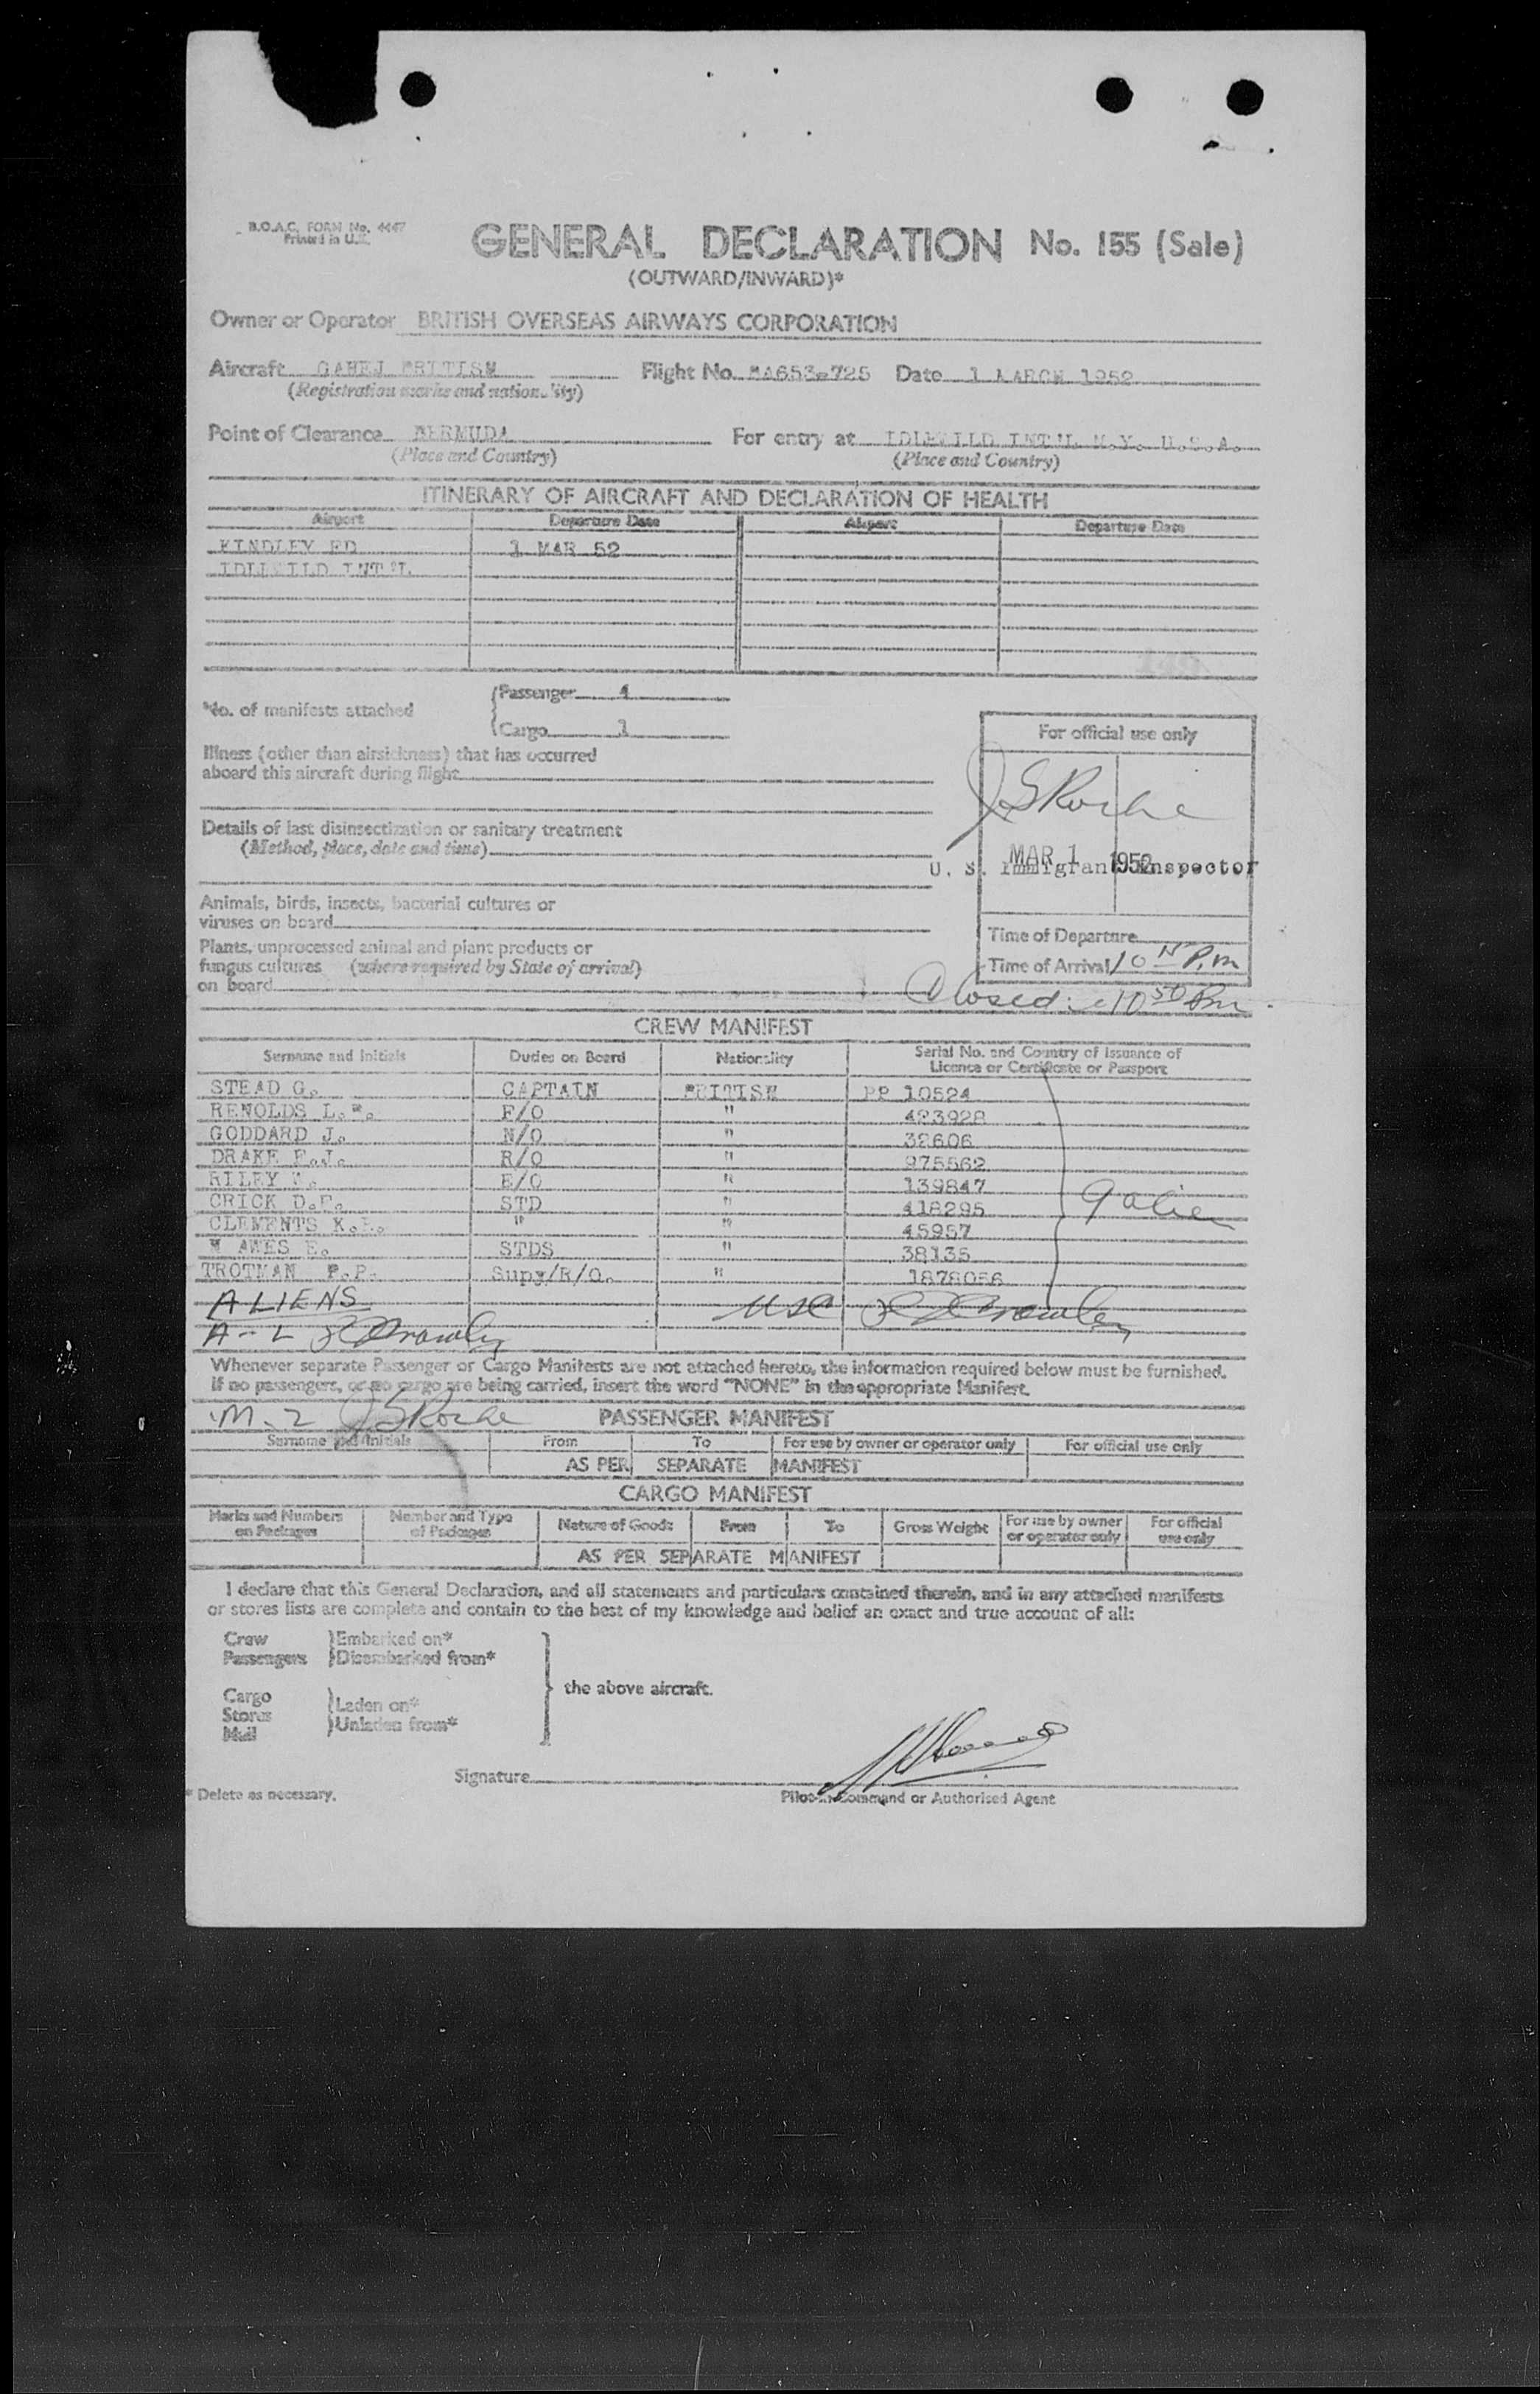 B.O.A.C. FORM No. 4447
Printed in U.K.
GENERAL DECLARATION No. 155 (Sale)
(OUTWARD/INWARD)*
Owner or Operator BRITISH OVERSEAS AIRWAYS CORPORATION
Aircraft BRITISH Flight No. BA653-725 Date 1 MARCH 1952
(Registration marks and nationality)
Point of Clearance BERMUDA For entry at IDLEWILD INT'L N.Y. U.S.A.
(Place and Country) (Place and Country)
ITINERARY OF AIRCRAFT AND DECLARATION OF HEALTH
Airport Departure Date Airport Departure Date
KINDLEY FD 1 MAR 52
IDLEWILD INT'L
*No. of manifests attached
Passenger
Cargo 1
Illness (other than airsickness) that has occurred
aboard this aircraft during flight
Details of last disinsectization or sanitary treatment
(Method, place, date and time)
Animals, birds, insects, bacterial cultures or
viruses on board
Plants, unprocessed animal and plant products or
fungus cultures (where required by State of arrival)
on board
For official use only
J S Roche
MAR 1 1952
U. S. Immigrant Inspector
Time of Departure
Time of Arrival 10 P.M
Closed: 10 50 Pm.
CREW MANIFEST
Surname and Initials Duties on Board Nationality Serial No. and Country of Issuance of
Licence or Certificate or Passport
STEAD G. CAPTAIN BRITISH PP 10524
RENOLDS L. F/O " 423928
GODDARD J. N/O " 32606
DRAKE F.J. R/O " 975562
RILEY E/O " 139847
CRICK D.P. STD " 418295
CLEMENTS K. " " 45957
E. STDS " 38135
TROTMAN P.P. Supy/R/O. " 1878056
9 alien
ALIENS USC
A-L
Whenever separate Passenger or Cargo Manifests are not attached hereto, the information required below must be furnished.
If no passengers, or no cargo are being carried, insert the word "NONE" in the appropriate Manifest.
M-2 J S Roche PASSENGER MANIFEST
Surname and Initials From To For use by owner or operator only For official use only
AS PER SEPARATE MANIFEST
CARGO MANIFEST
Marks and Numbers on Packages Number and Type of Packages Nature of Goods From To Gross Weight For use by owner or operator only For official use only
AS PER SEPARATE MANIFEST
I declare that this General Declaration, and all statements and particulars contained therein, and in any attached manifests
or stores lists are complete and contain to the best of my knowledge and belief an exact and true account of all:
Crew Embarked on*
Passengers Disembarked from*
the above aircraft.
Cargo Laden on*
Stores
Mail Unladen from*
Signature
* Delete as necessary. Pilot in Command or Authorised Agent